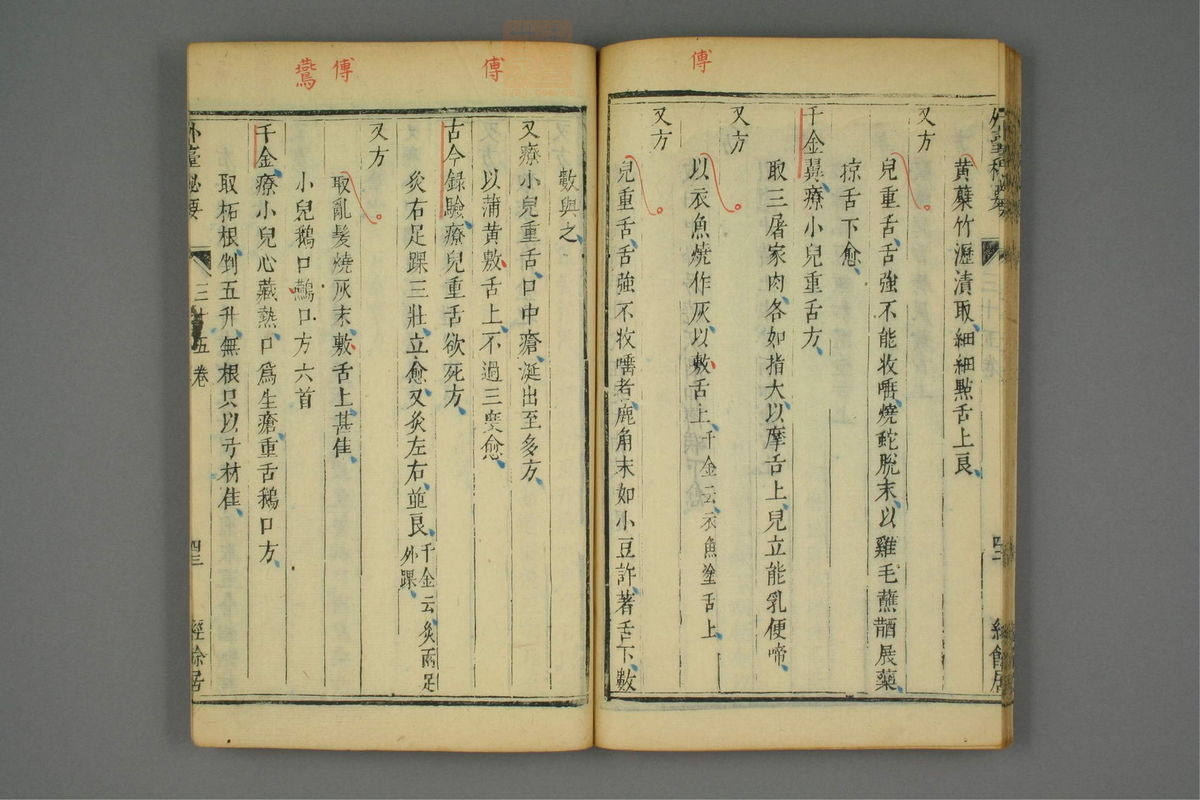 傅
黃蘗竹瀝漬取細細㸃舌上良
又方
兒重舌舌強不能收唾燒蛇脫末以雞毛蘸醋展藥
掠舌下愈
千金翼療小兒重舌方
取三屠家肉各如指大以摩舌上兒立能乳便啼
又方
以衣魚燒作灰以敷舌上千金云衣魚塗舌上
又方
兒重舌舌強不收唾者鹿角末如小豆許著舌下數
傅
傅
鵞
數與之
又療小兒重舌口中瘡涎出至多方
以蒲黃敷舌上不過三度愈
古今録驗療兒重舌欲死方
灸右足踝三壯立愈又灸左右並良千金云灸兩足外踝
又方
取亂髮燒灰末敷舌上甚佳
小兒鵝口鷰口方六首
千金療小兒心藏熱口爲生瘡重舌鵝口方
取柘根剉五升無根只以弓材佳
外臺秘要
三十五卷
四三
經餘居